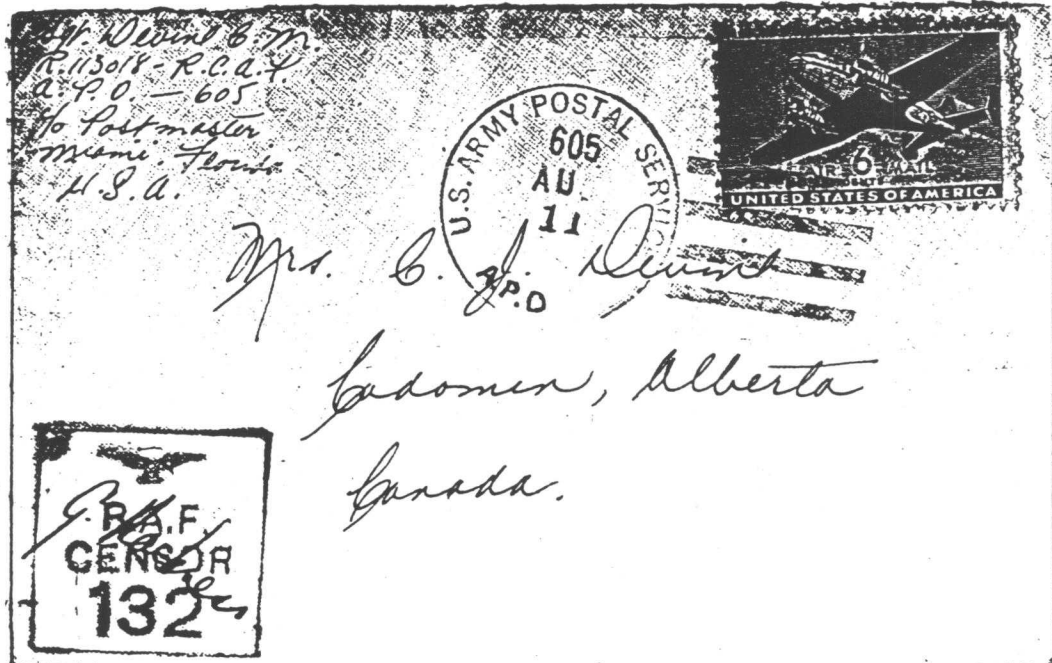 Sgt. Devine C. M.
R.113018 - R.C.A.F.
A.P.O. — 605
c/o Postmaster
Miami, Florida
U.S.A.
U.S. ARMY POSTAL SERVICE
605
AU
11
A.P.O
AIR 6 MAIL
UNITED STATES OF AMERICA
Mrs. C. J. Devine
Cadomin, Alberta
Canada.
R.A.F.
CENSOR
132